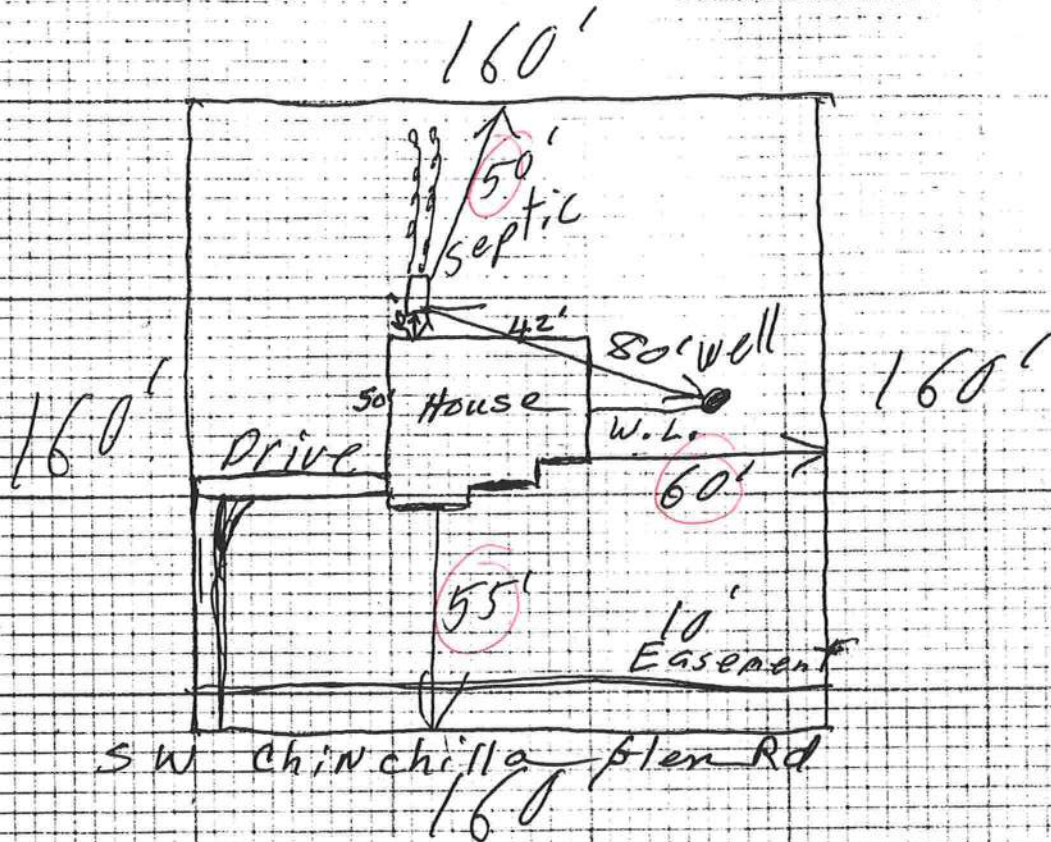 160'
50'
septic
42'
80' well
50' House
160'
160'
W.L.
Drive
60'
55'
10'
Easement
SW Chinchilla Glen Rd
160